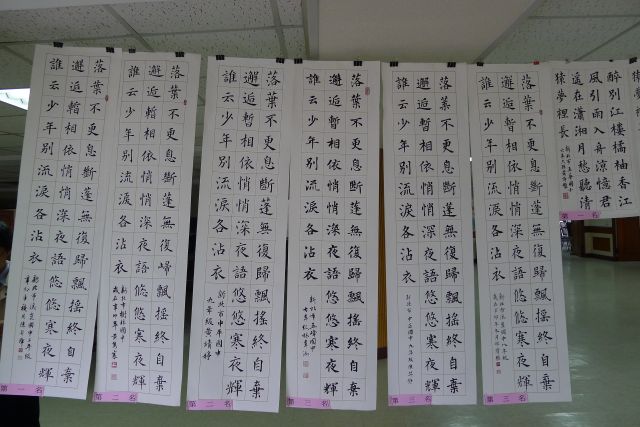 醉別江樓橘柚香江
風引雨入舟涼憶君
遙在瀟湘月愁聽清
猿夢裡長
第一名
落葉不更息斷蓬無復歸飄搖終自棄
邂逅暫相依悄悄深夜語悠悠寒夜輝
誰云少年別流淚各沾衣
第三名
落葉不更息斷蓬無復歸飄搖終自棄
邂逅暫相依悄悄深夜語悠悠寒夜輝
誰云少年別流淚各沾衣
第三名
落葉不更息斷蓬無復歸飄搖終自棄
邂逅暫相依悄悄深夜語悠悠寒夜輝
誰云少年別流淚各沾衣
新北市五峰國中
第三名
落葉不更息斷蓬無復歸飄搖終自棄
邂逅暫相依悄悄深夜語悠悠寒夜輝
誰云少年別流淚各沾衣
新北市中平國中
九年級雷靖婷
第二名
落葉不更息斷蓬無復歸飄搖終自棄
邂逅暫相依悄悄深夜語悠悠寒夜輝
誰云少年別流淚各沾衣
新北市樹林國中
第二名
落葉不更息斷蓬無復歸飄搖終自棄
邂逅暫相依悄悄深夜語悠悠寒夜輝
誰云少年別流淚各沾衣
第一名